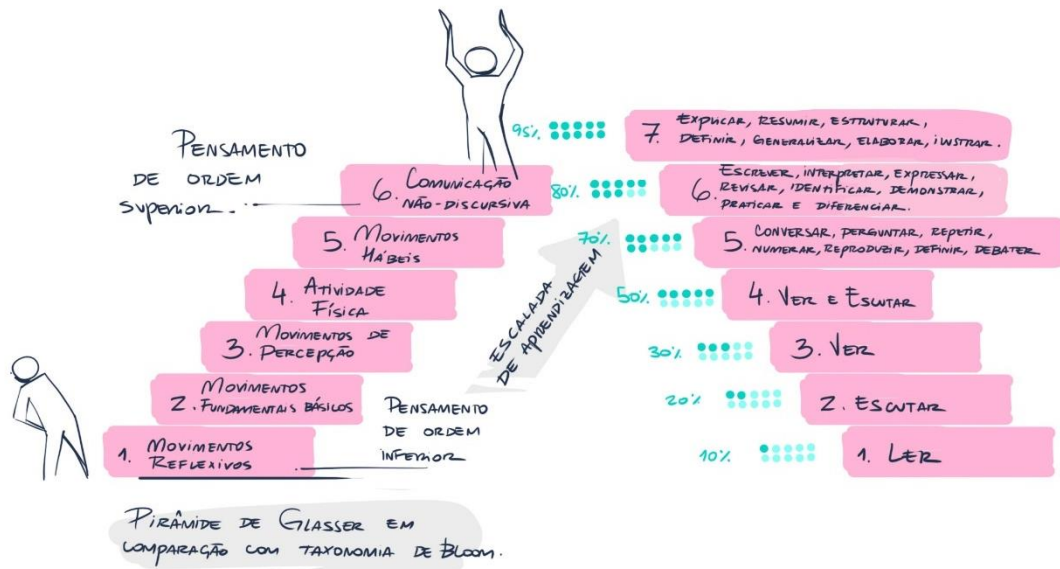 PENSAMENTO
DE ORDEM
SUPERIOR.
6. COMUNICAÇÃO
NÃO-DISCURSIVA
5. MOVIMENTOS
HÁBEIS
4. ATIVIDADE
FÍSICA
3. MOVIMENTOS DE
PERCEPÇÃO
2. MOVIMENTOS
FUNDAMENTAIS BÁSICOS
1. MOVIMENTOS
REFLEXIVOS
PENSAMENTO
DE ORDEM
INFERIOR
ESCALADA
DE APRENDIZAGEM
95%
7. EXPLICAR, RESUMIR, ESTRUTURAR,
DEFINIR, GENERALIZAR, ELABORAR, ILUSTRAR.
80%
6. ESCREVER, INTERPRETAR, EXPRESSAR,
REVISAR, IDENTIFICAR, DEMONSTRAR,
PRATICAR E DIFERENCIAR.
70%
5. CONVERSAR, PERGUNTAR, REPETIR,
NUMERAR, REPRODUZIR, DEFINIR, DEBATER
50%
4. VER E ESCUTAR
30%
3. VER
20%
2. ESCUTAR
10%
1. LER
PIRÂMIDE DE GLASSER EM
COMPARAÇÃO COM TAXONOMIA DE BLOOM.